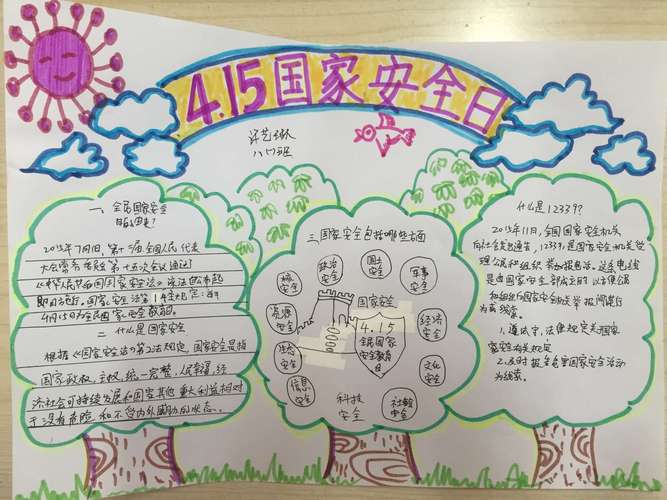 4.15国家安全日
八(1)班
一、全民国家安全
的由来?
2015年7月1日,第十二届全国人民代表
大会常务委员会第十五次会议通过
《中华人民共和国国家安全法》该法公布起
即日施行。国家安全法第14条规定:每年
4月15日为全民国家安全教育日。
二、什么是国家安全
根据《国家安全法》第2法规定,国家安全是指
国家政权、主权、统一完整、人民幸福、经
济社会可持续发展和国家其他重大利益相对
于没有危险,和不受内外威胁的状态。
三、国家安全包括哪些方面
政治安全
国土安全
军事安全
核安全
资源安全
生态安全
信息安全
科技安全
社会安全
文化安全
经济安全
国家安全
4.15
全民国家
安全教育
日
什么是12339?
2015年11月,全国国家安全机关
向社会发出通告,12339是国家安全机关受
理公民和组织举报电话。这条电话
是由国家安全部设立的以方便公
民和组织向国家安全机关举报间谍行
为或线索。
1、遵守宪法、法律规定关于国家
家安全有关规定
2、及时报告危害国家安全活动
的线索。